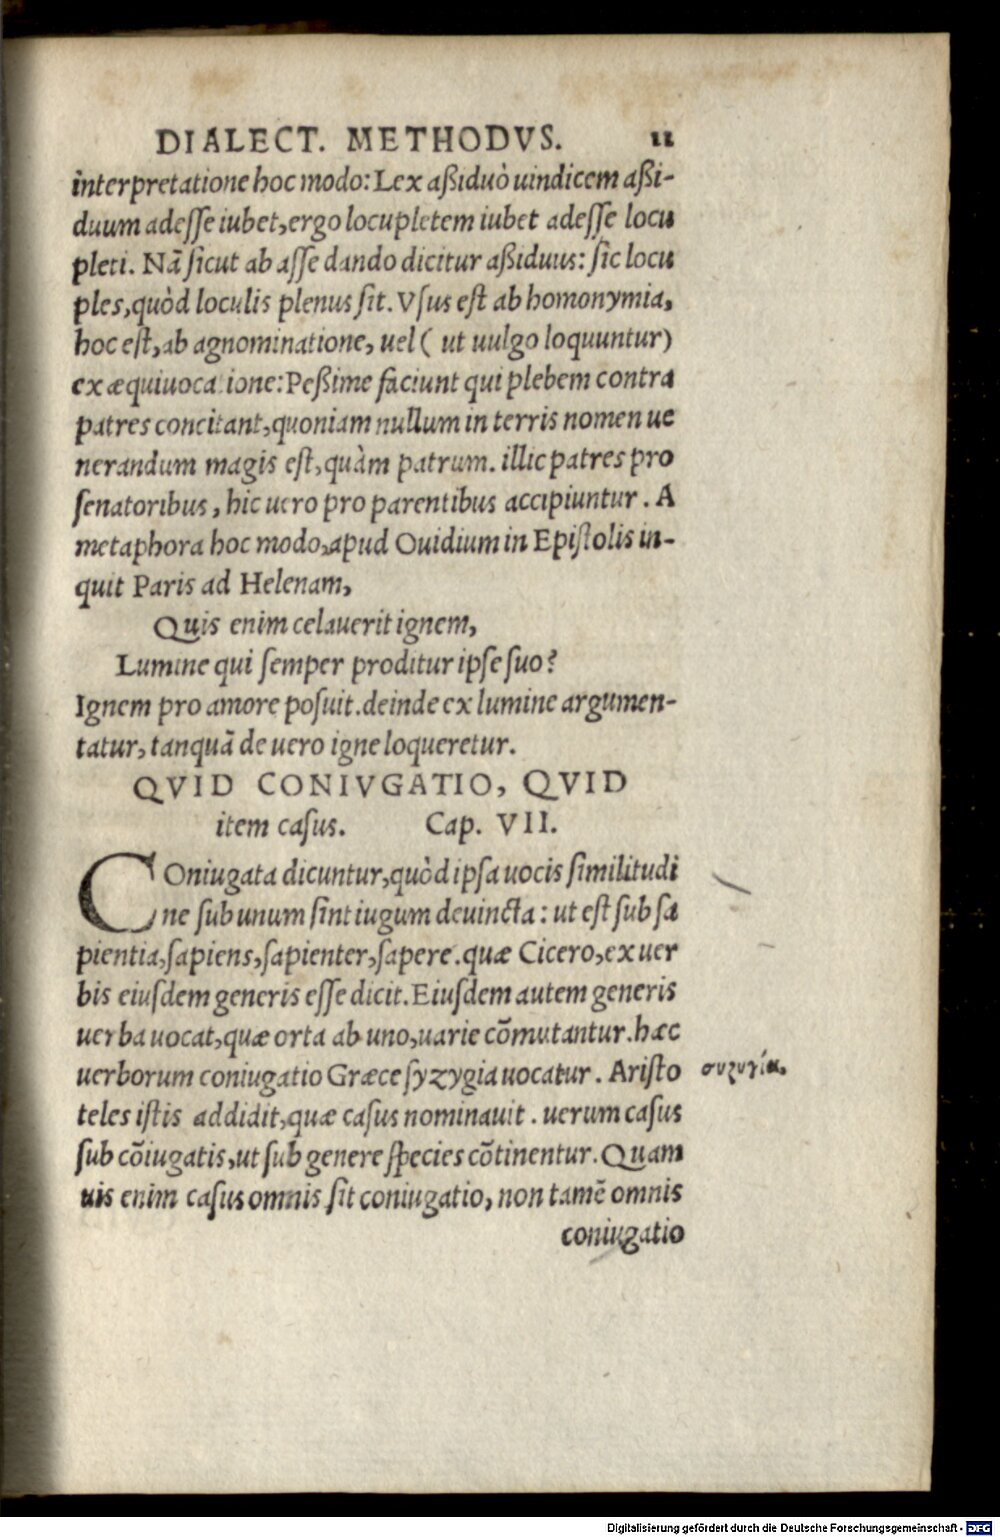 DIALECT. METHODVS. 11
interpretatione hoc modo: Lex aßiduò uindicem aßi-
duum adesse iubet, ergo locupletem iubet adesse locu
pleti. Nã sicut ab asse dando dicitur aßiduus: sic locu
ples, quòd loculis plenus sit. Vsus est ab homonymia,
hoc est, ab agnominatione, uel ( ut uulgo loquuntur)
ex æquiuocatione: Peßime faciunt qui plebem contra
patres concitant, quoniam nullum in terris nomen ue
nerandum magis est, quàm patrum. illic patres pro
senatoribus, hic uero pro parentibus accipiuntur. A
metaphora hoc modo, apud Ouidium in Epistolis in-
quit Paris ad Helenam,
Quis enim celauerit ignem,
Lumine qui semper proditur ipse suo?
Ignem pro amore posuit. deinde ex lumine argumen-
tatur, tanquã de uero igne loqueretur.
QVID CONIVGATIO, QVID
item casus. Cap. VII.
COniugata dicuntur, quòd ipsa uocis similitudi
ne sub unum sint iugum deuincta: ut est sub sa
pientia, sapiens, sapienter, sapere. quæ Cicero, ex uer
bis eiusdem generis esse dicit. Eiusdem autem generis
uerba uocat, quæ orta ab uno, uarie cõmutantur. hæc
uerborum coniugatio Græce syzygia uocatur. Aristo
συζυγία.
teles istis addidit, quæ casus nominauit. uerum casus
sub cõiugatis, ut sub genere species cõtinentur. Quam
uis enim casus omnis sit coniugatio, non tamẽ omnis
coniugatio
Digitalisierung gefördert durch die Deutsche Forschungsgemeinschaft - DFG